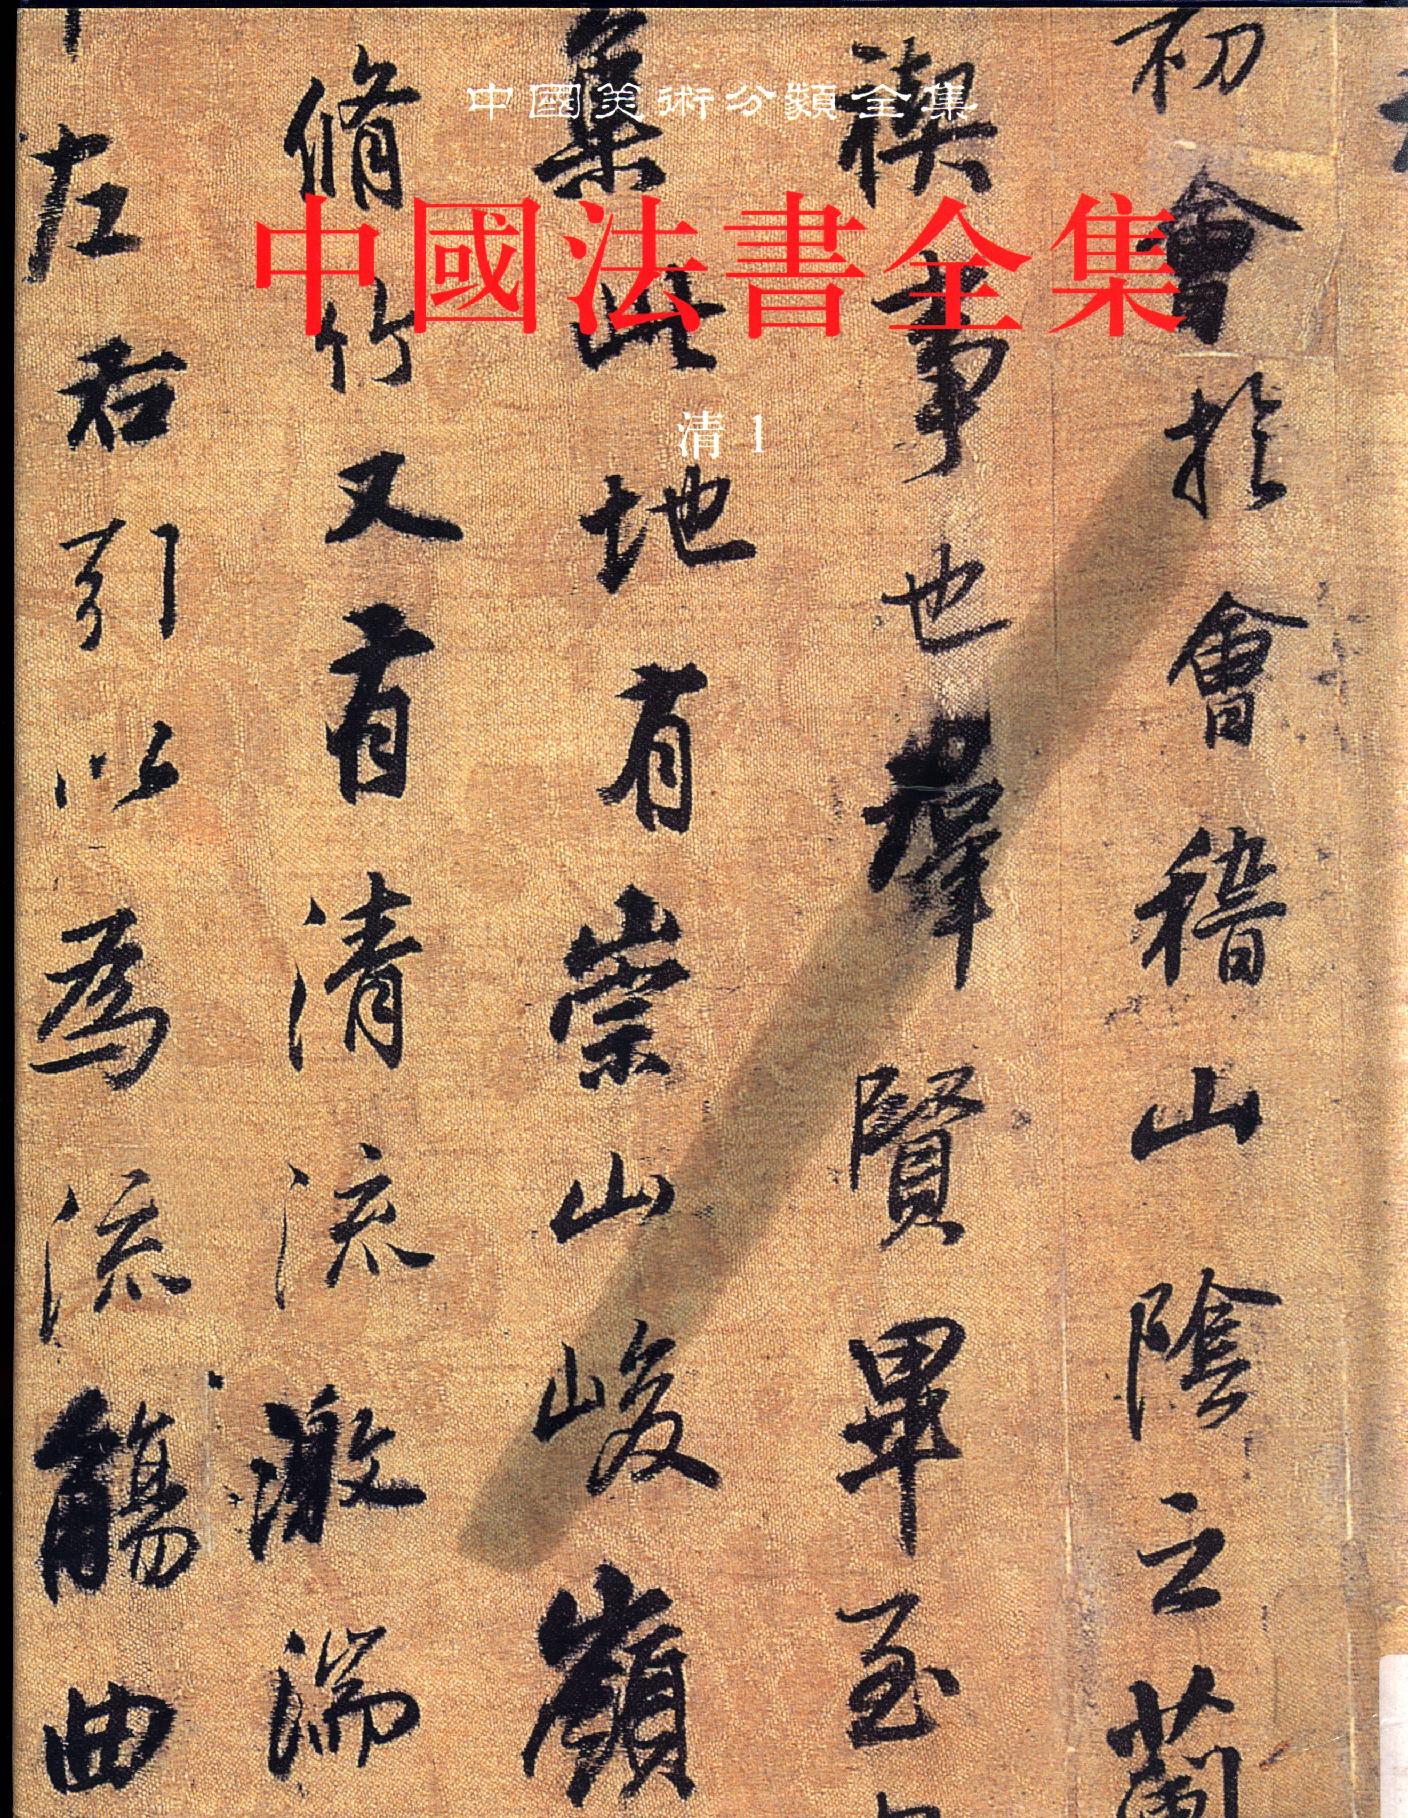 中國美術分類全集
中國法書全集
清 1
初會於會稽山陰之蘭
禊事也羣賢畢至
集此地有崇山峻嶺
脩竹又有清流激湍
左右引以為流觴曲